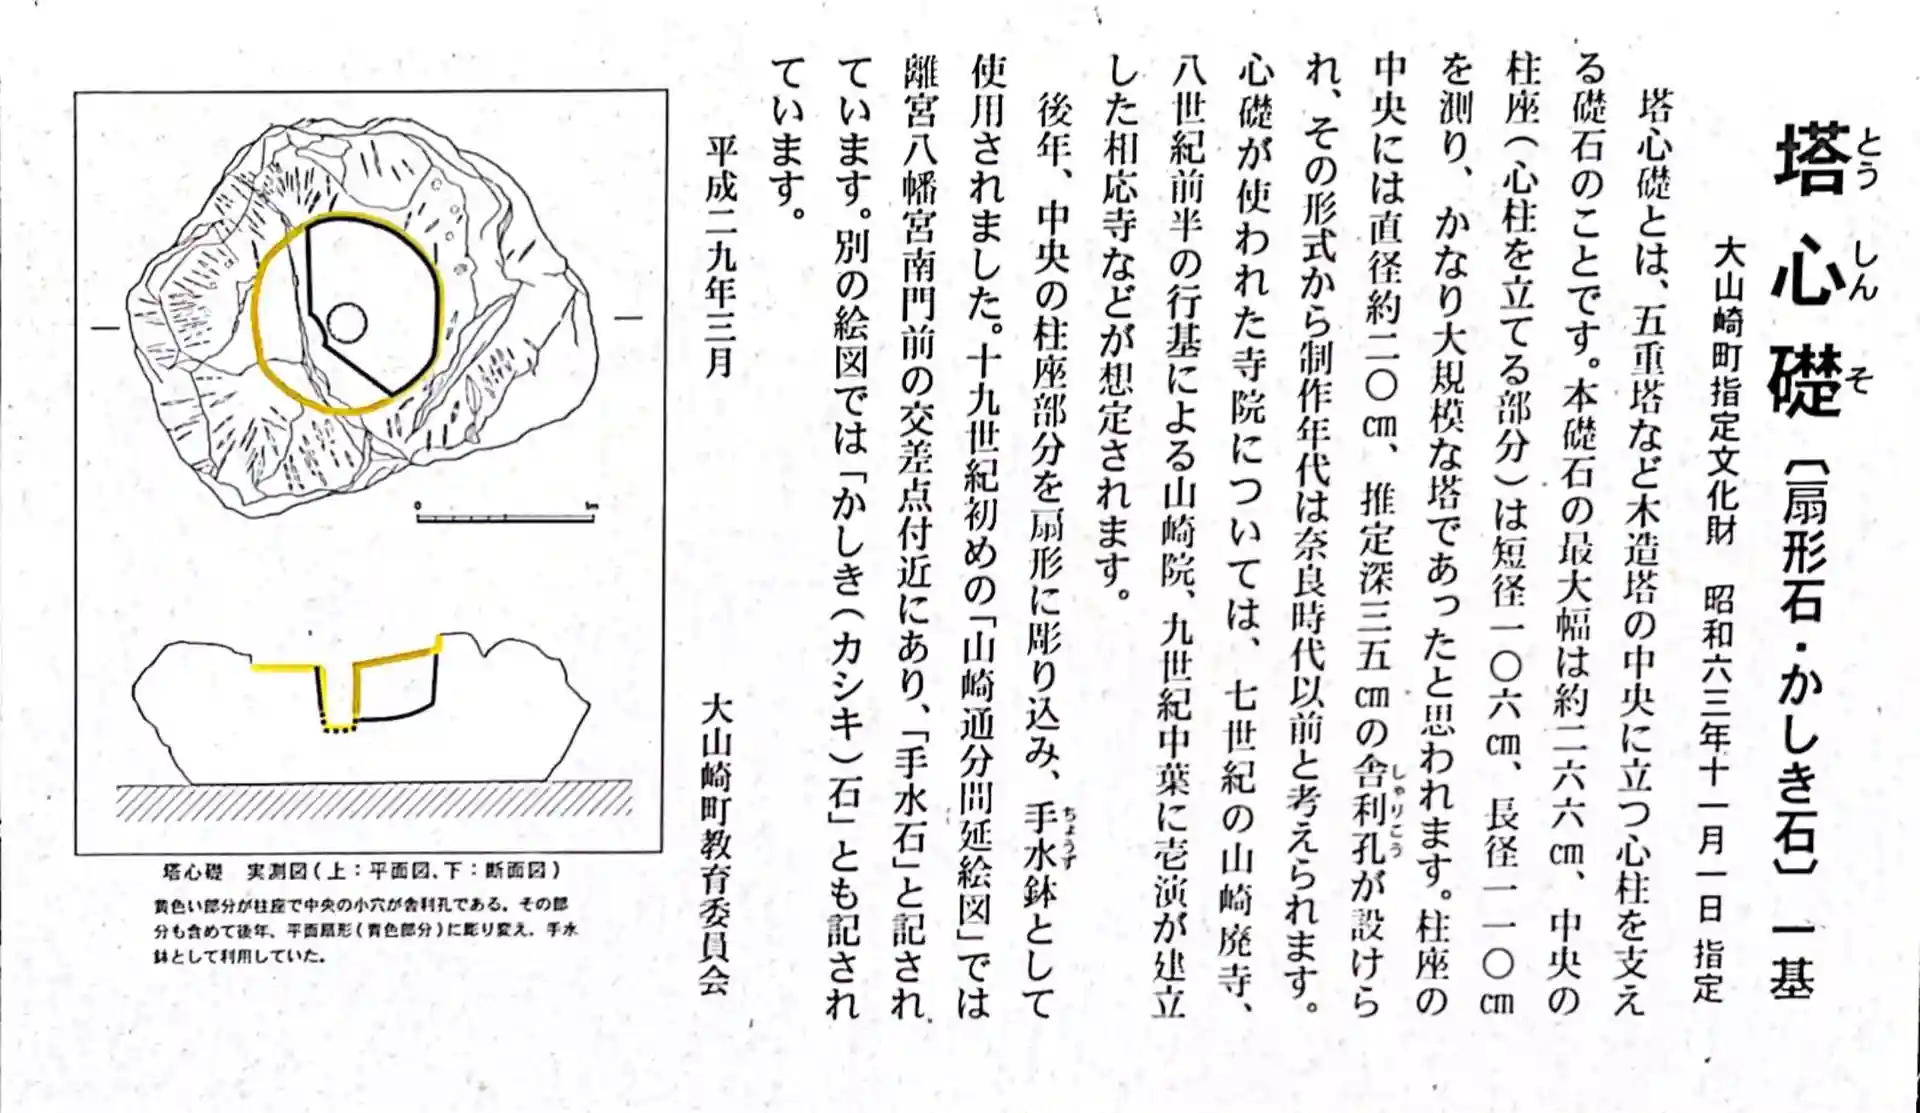 塔心礎〔扇形石・かしき石〕一基
とう しん そ
大山崎町指定文化財 昭和六三年十一月一日 指定
塔心礎とは、五重塔など木造塔の中央に立つ心柱を支え
る礎石のことです。本礎石の最大幅は約二六六㎝、中央の
柱座(心柱を立てる部分)は短径一〇六㎝、長径一一〇㎝
を測り、かなり大規模な塔であったと思われます。柱座の
中央には直径約二〇㎝、推定深三五㎝の舎利孔が設けら
しゃりこう
れ、その形式から制作年代は奈良時代以前と考えられます。
心礎が使われた寺院については、七世紀の山崎廃寺、
八世紀前半の行基による山崎院、九世紀中葉に壱演が建立
した相応寺などが想定されます。
後年、中央の柱座部分を扇形に彫り込み、手水鉢として
ちょうず
使用されました。十九世紀初めの「山崎通分間延絵図」では
離宮八幡宮南門前の交差点付近にあり、「手水石」と記され
ています。別の絵図では「かしき(カシキ)石」とも記され
ています。
平成二九年三月
大山崎町教育委員会
0
塔心礎 実測図(上:平面図、下:断面図)
黄色い部分が柱座で中央の小穴が舎利孔である。その部
分も含めて後年、平面扇形(青色部分)に彫り変え、手水
鉢として利用していた。